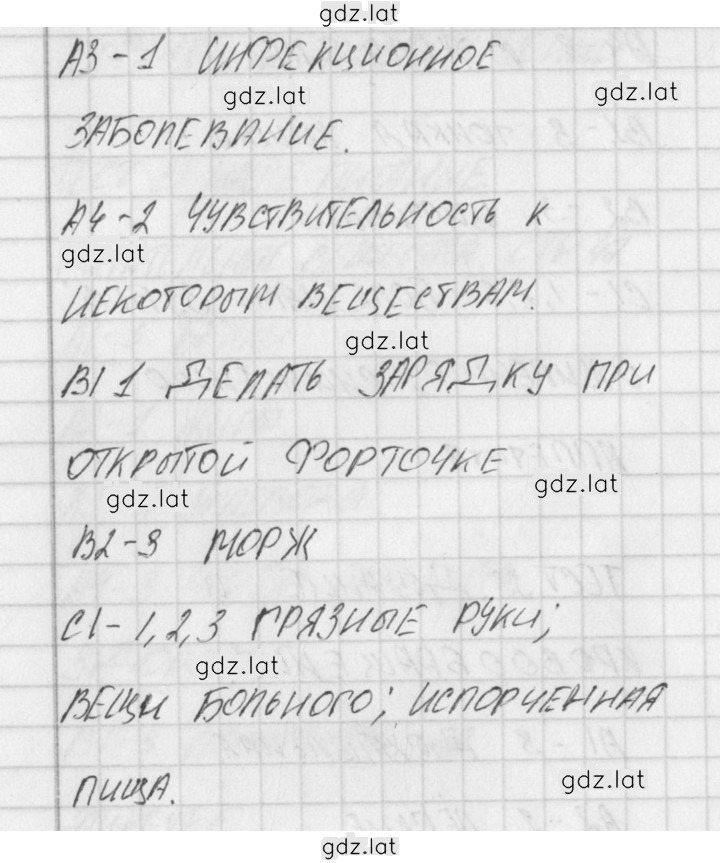 gdz.lat
А3-1 ИНФЕКЦИОННОЕ
gdz.lat
gdz.lat
ЗАБОЛЕВАНИЕ.
А4-2 ЧУВСТВИТЕЛЬНОСТЬ К
gdz.lat
НЕКОТОРЫМ ВЕЩЕСТВАМ.
gdz.lat
В1 1 ДЕЛАТЬ ЗАРЯДКУ ПРИ
ОТКРЫТОЙ ФОРТОЧКЕ
gdz.lat
gdz.lat
В2-3 МОРЖ
С1-1,2,3 ГРЯЗНЫЕ РУКИ;
gdz.lat
ВЕЩИ БОЛЬНОГО; ИСПОРЧЕННАЯ
ПИЩА.
gdz.lat
gdz.lat